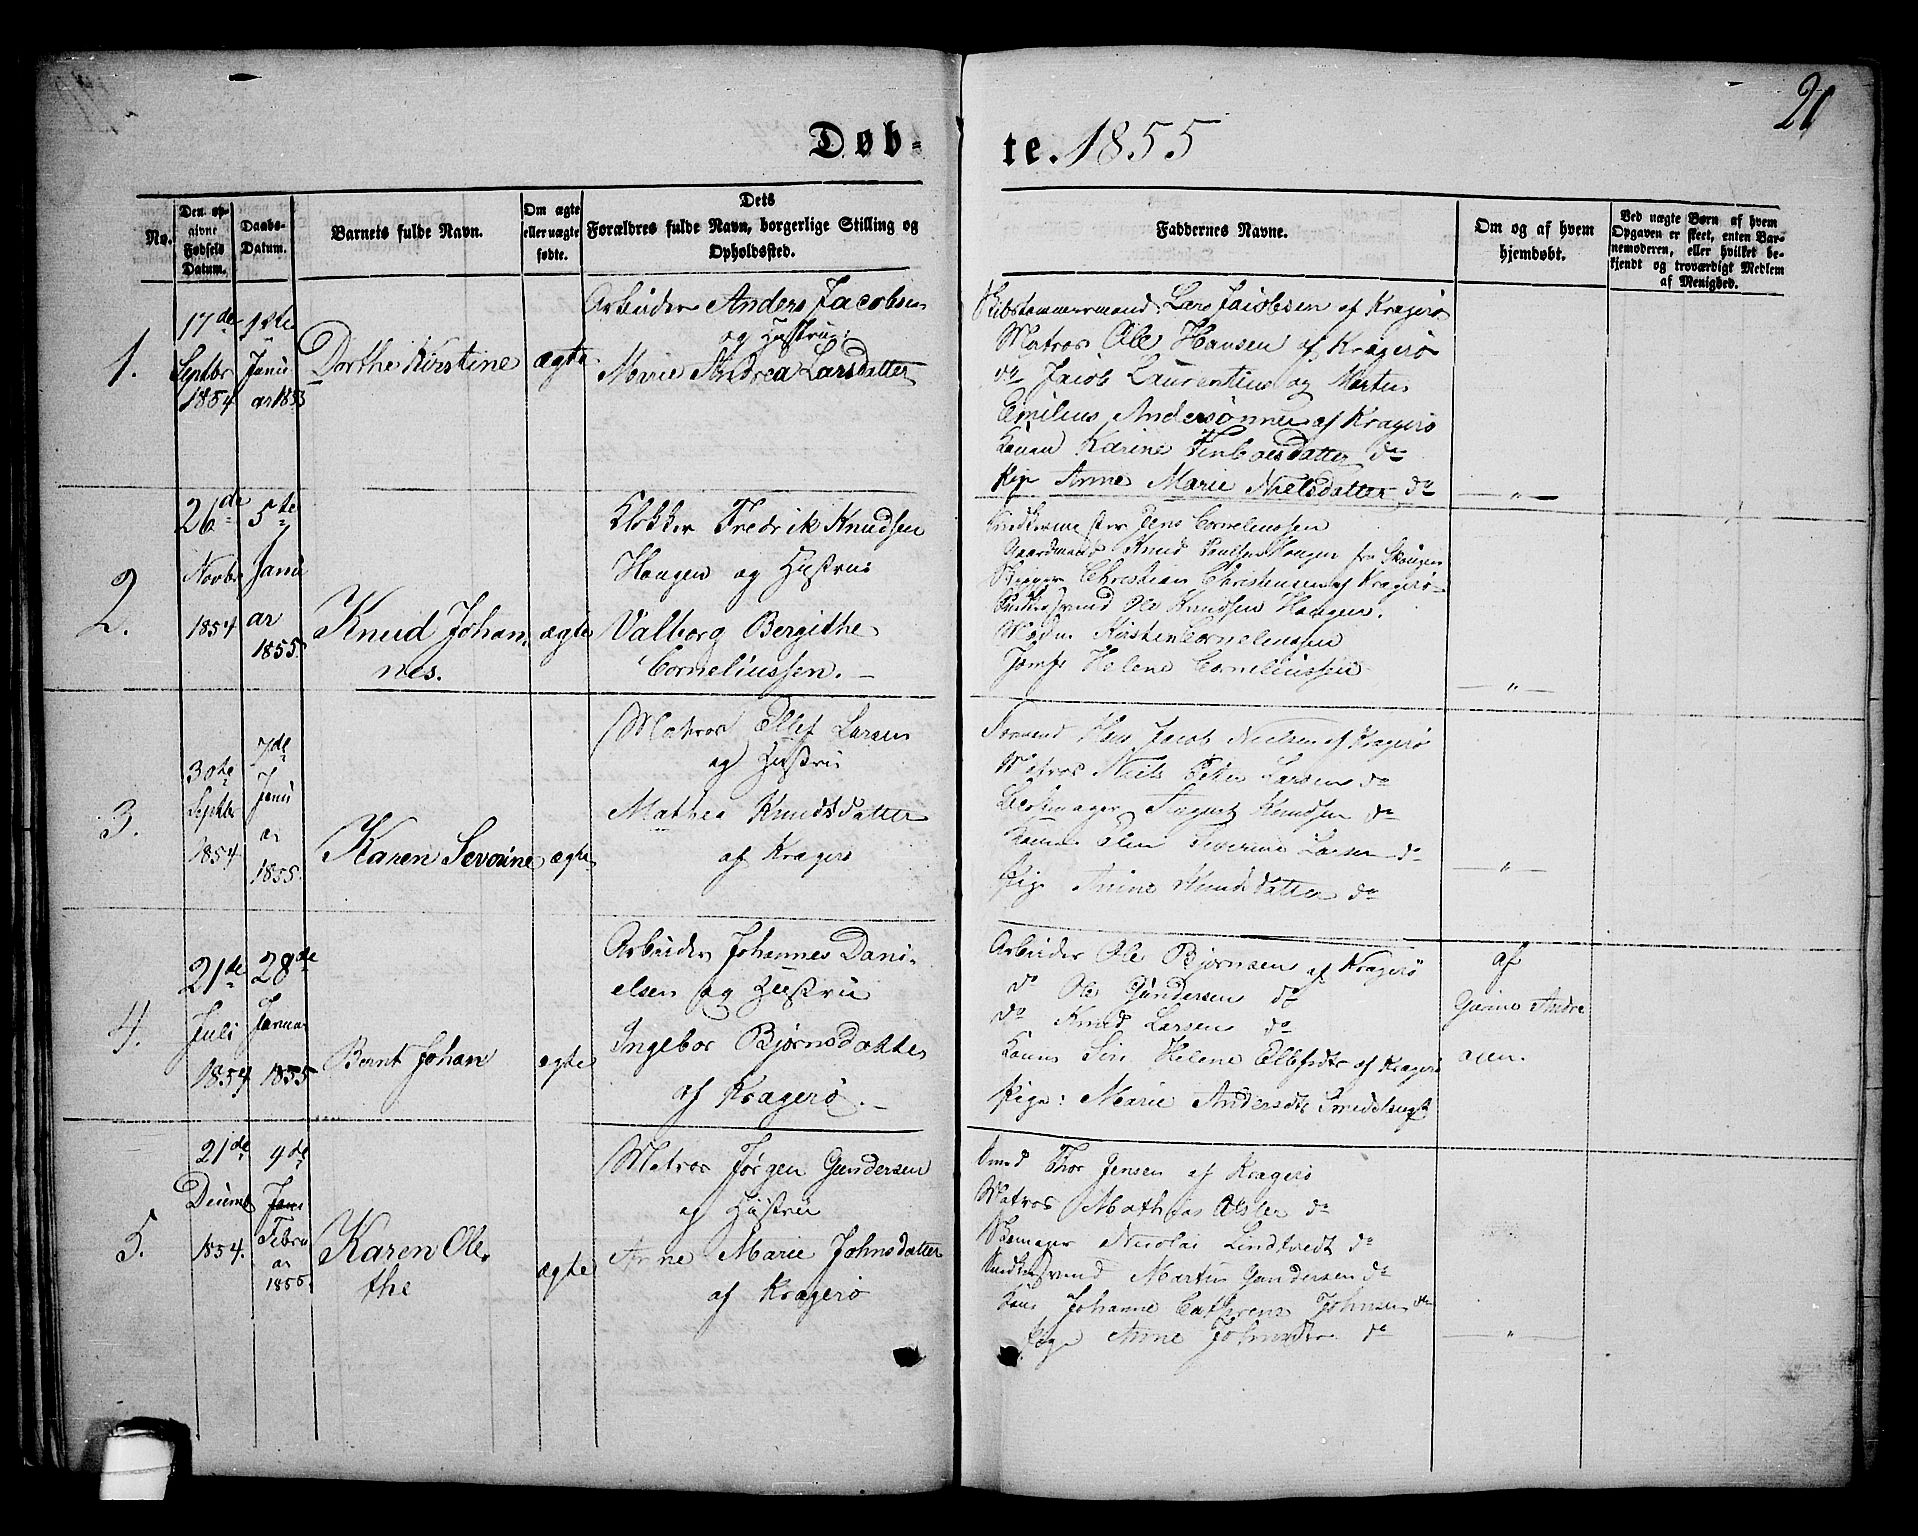 21
Døb- te. 1855
No.
Den op-
givne
Fødsels
Datum.
Daabs-
Datum.
Barnets fulde Navn.
Om ægte
eller uægte
fødte.
Dets
Forældres fulde Navn, borgerlige Stilling og
Opholdssted.
Faddernes Navne.
Om og af hvem
hjemdøbt.
Ved uægte Børn af hvem
Opgaven er skeet, enten Bar-
nemoderen, eller hvilket be-
kjendt og troværdigt Medlem
af Menighed.
1.
17de
Septbr
1854
1ste
Janu
ar 1855
Dorthe Kirstine
ægte
Arbeider Anders Jacobsen
og Hustrue:
Marie Andrea Larsdatter
Skibstømmermand: Lars Jacobsen af Kragerø
Matros Ole Hansen af Kragerø
do Jacob Laurentius og Martin
Emilius Andersønner af Kragerø
Konen Karine Finboesdatter do
Pige Anne Marie Nielsdatter do
— " —
2.
26de
Novbr
1854
5te
Janu
ar
1855.
Knud Johan
nes.
ægte
Klokker Fredrik Knudsen
Haagen og Hustrue
Valborg Bergithe
Corneliussen. —
Jens Corneliussen
Gaardmand Knud Haagen fra
Skipper Christian Christensen af Kragerø
Ole Knudsen Haagen.
Madm Kirsten Corneliussen
Jomfr Helene Corneliussen
— " —
3.
30te
Septbr
1854
7de
Janu
ar
1855.
Karen Severine
ægte
Matros Ellef Larsen
og Hustru
Mathea Knudsdatter
af Kragerø
Hans Jacob Nielsen af Kragerø
Matros Niels Peter Larsen do
August Knudsen do
Konen Severine Larsen do
Pige Anine Knudsdatter do
— " —
4.
21de
Juli
1854
28de
Januar
1855
Bernt Johan
ægte
Arbeider Johannes Dani-
elsen og Hustrue
Ingebor Bjørnsdatter
af Kragerø. —
Arbeider Ole Bjørnsen af Kragerø
do Ole Gundersen do
do Knud Larsen do
Konen Siri Helene Ellefsdtr af Kragerø
Pige: Marie Andersdtr
af
Gurine Andre
asen.
5.
21de
Decemb
1854.
9de
Janu
Febru
ar
1855.
Karen Ole,
the
ægte
Matros Jørgen Gundersen
og Hustrue
Anne Marie Johnsdatter
af Kragerø
Smed Thor Jensen af Kragerø
Matros Mathias Olsen do
Nicolai Lindtvedt do
Martin Gundersen do
Kone Johanne Cathrene Johnsen do
Pige Anne Johnsdtr do
— " —